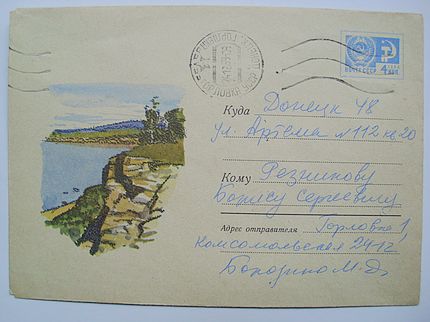 ПОЧТА СССР
4 КОП
Куда Донецк 48
ул. Артёма № 112 кв 20
Кому Резникову
Борису Сергеевичу
Адрес отправителя Горловка 1,
Комсомольская 24-12
Бородино М.Д.